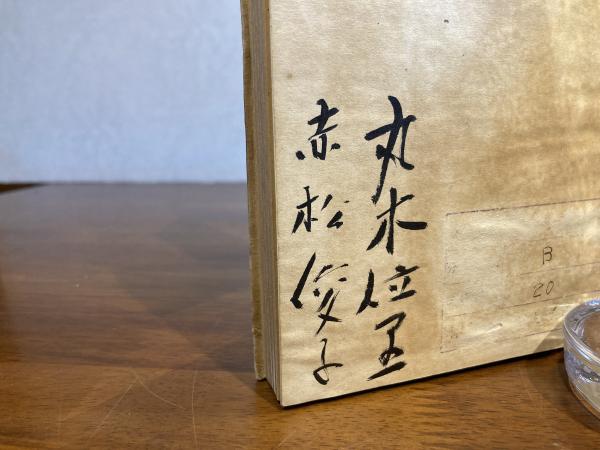 丸木位里
赤松俊子
B
20